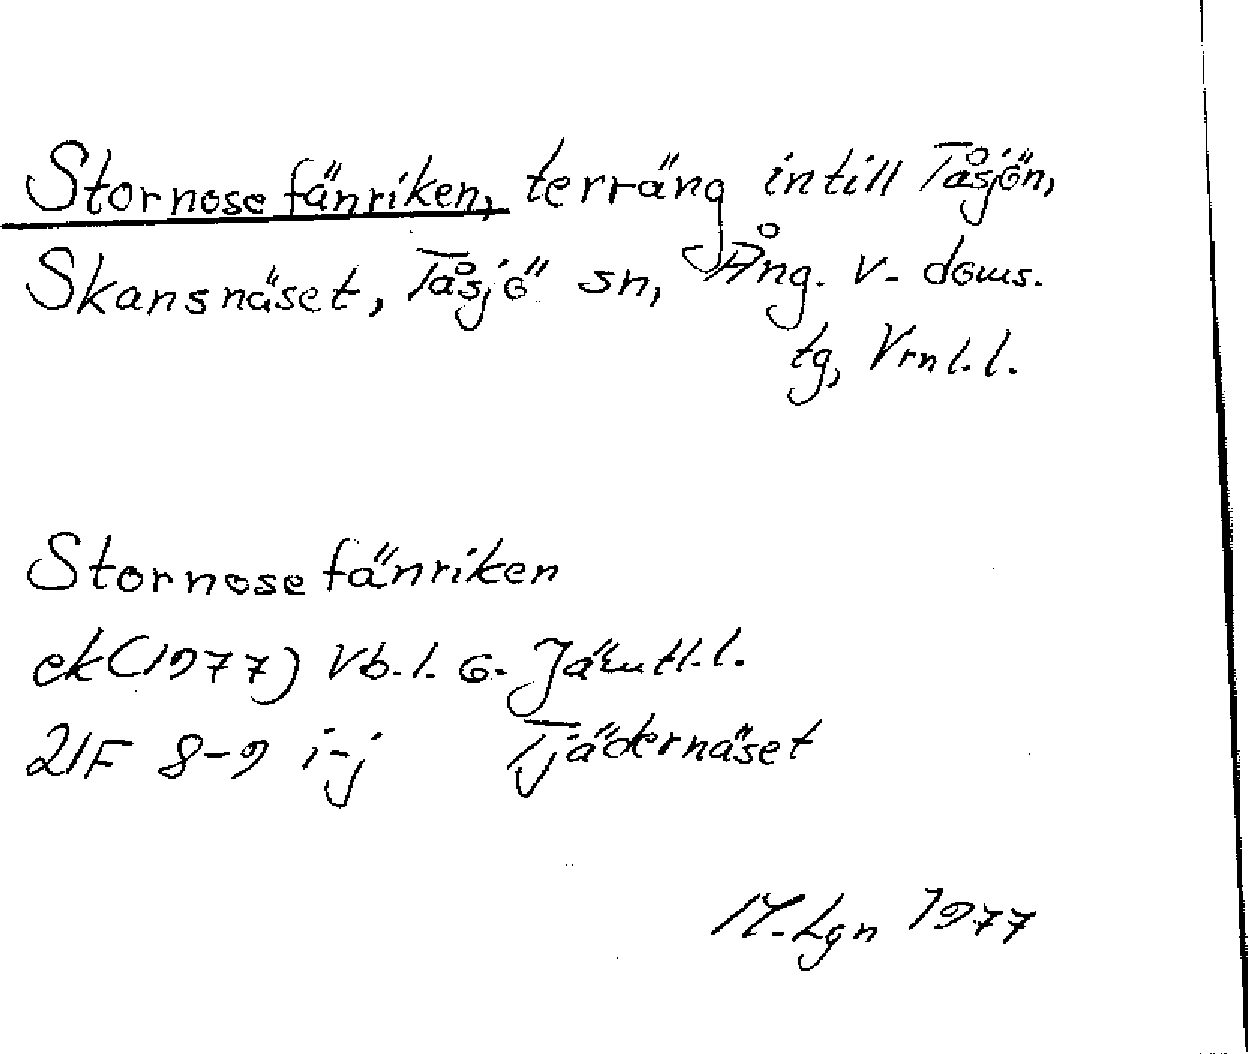 Stornosefänriken, terräng intill Tåsjön,
Skansnäset, Tåsjö sn, Ång. v. doms.
tg, Vrnl.l.
Stornosefänriken
ek (1977) Vb.l. o. Jämtl.l.
21F 8-9 i-j Tjädernäset
M. Lgn 1977